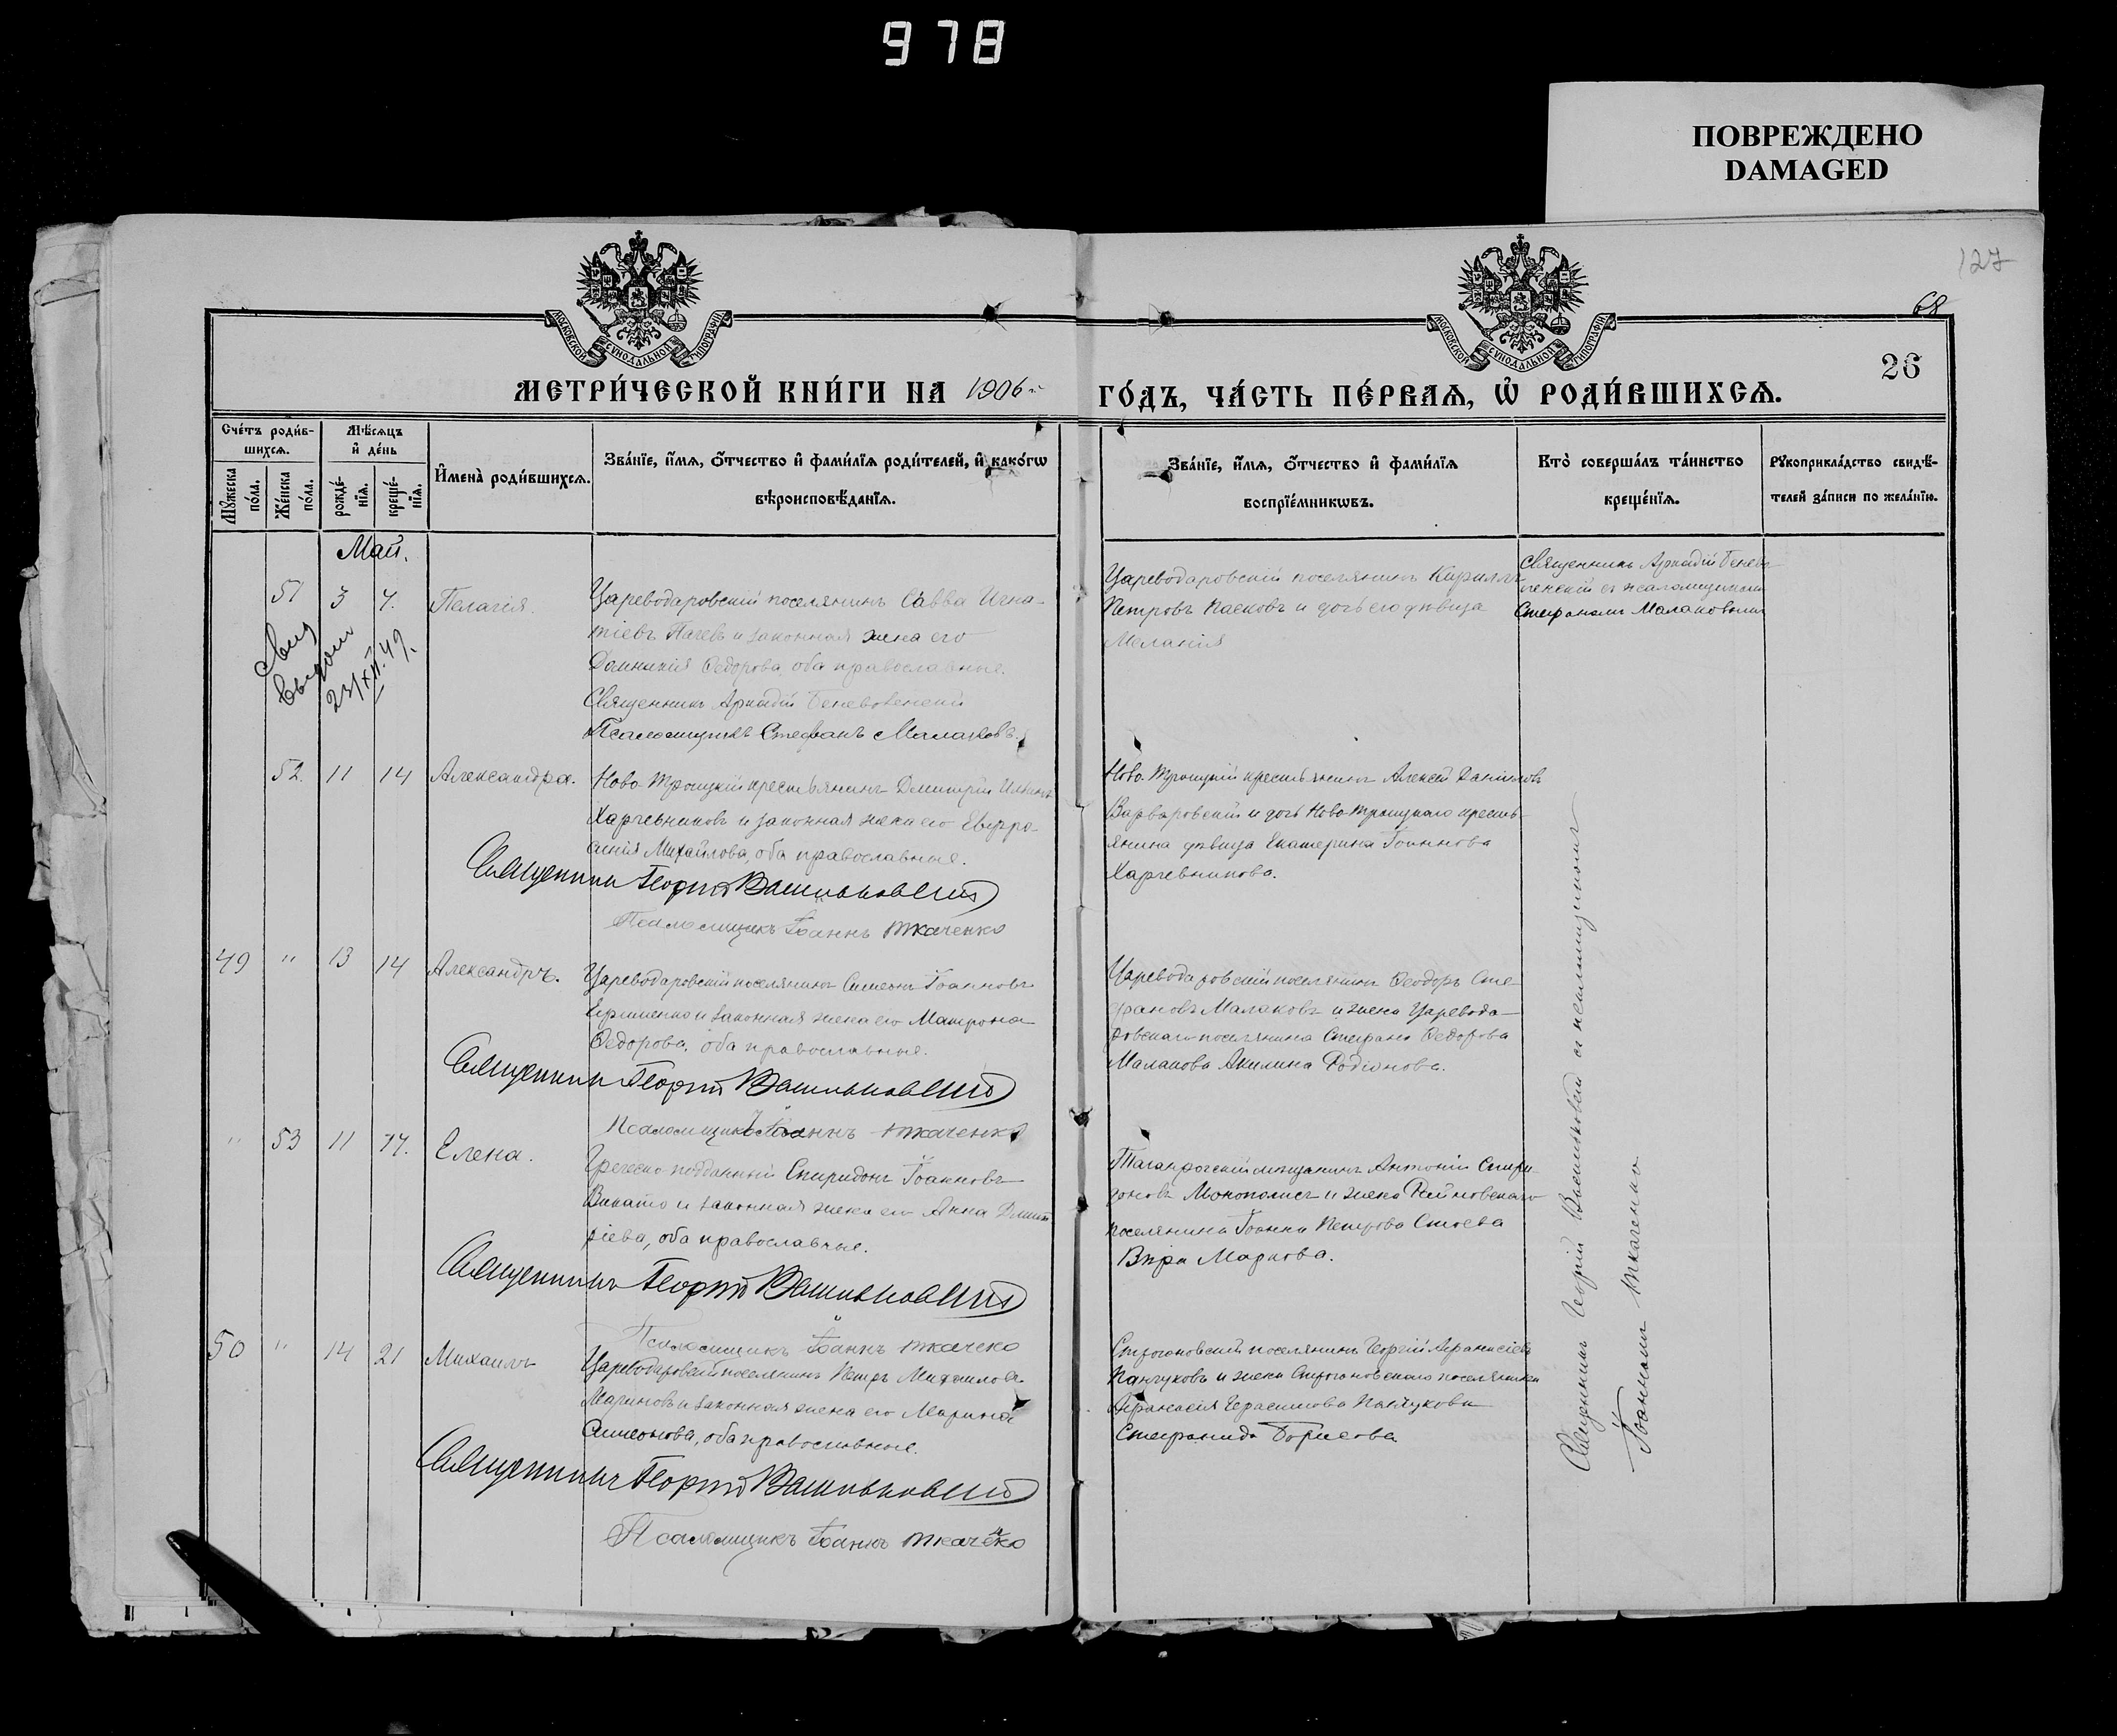 978
ПОВРЕЖДЕНО
DAMAGED
127
68
26
МОСКОВСКОЙ СѴНОДАЛЬНОЙ ТИПОГРАФІИ
МОСКОВСКОЙ СѴНОДАЛЬНОЙ ТИПОГРАФІИ
МЕТРИ́ЧЕСКОЙ КНИ́ГИ НА 1906 й
ГО́ДЪ, ЧА́СТЬ ПЕ́РВАѦ, Ѿ РОДИ́ВШИХСѦ.
Сче́тъ роди́в-
шихсѧ.
Мꙋ́жеска по́ла.
Же́нска по́ла.
Мѣ́сѧцъ
и҆ де́нь
рожде́-
нїѧ.
креще́-
нїѧ.
И҆мена̀ роди́вшихсѧ.
Зва́нїе, и҆́мѧ, ѻ҆́тчество и҆ фами́лїѧ роди́телей, и҆ како́гѡ
вѣроисповѣ́данїѧ.
Зва́нїе, и҆́мѧ, ѻ҆́тчество и҆ фами́лїѧ
воспрїе́мникѡвъ.
Кто̀ соверша́лъ та́инство
креще́нїѧ.
Рꙋкоприкла́дство свидѣ́-
телей за́писи по жела́нїю.
Май.
51 3 7. Пелагія.
Цареводаровскій поселянинъ Савва Игна-
тіевъ Пачев и законная жена его
Домникія Ѳедорова, оба православные.
Священникъ Аркадій Беневоленскій
Псаломщикъ Стефанъ Малаховъ.
Цареводаровскій поселянинъ Кириллъ
Петровъ Пасковъ и дочь его дѣвица
Меланія
Священникъ Аркадій Бенево-
ленскій съ псаломщикомъ
Стефаномъ Малаховымъ
Свид
выдан
23/XII.49.
52. 11 14 Александра.
Ново-Троицкій крестьянинъ Дмитрій Ильинъ
Харчевниковъ и законная жена его Евфро-
синія Михайлова, оба православные.
Священникъ Георгій Васильковскій
Псаломщикъ Іоаннъ Ткаченко
Ново-Троицкій крестьянинъ Алексѣй Даніиловъ
Варваровскій и дочь Ново-Троицкаго кресть-
янина дѣвица Екатерина Іоаннова
Харчевникова.
49 " 13 14 Александръ.
Цареводаровскій поселянинъ Симеонъ Іоанновъ
и законная жена его Матрона
Ѳедорова, оба православные.
Священникъ Георгій Васильковскій
Псаломщикъ Іоаннъ Ткаченко
Цареводаровскій поселянинъ Ѳеодоръ Сте-
фановъ Малаховъ и жена Царевода-
ровскаго поселянина Стефана Ѳедорова
Малахова Акилина Родіонова.
" 53 11 14. Елена.
Греческо-подданный Спиридонъ Іоанновъ
и законная жена его Анна Дмит
ріева, оба православные.
Священникъ Георгій Васильковскій
Псаломщикъ Іоаннъ Ткаченко
Таганрогскій мѣщанинъ Антоній Спири-
доновъ Монополисъ и жена Райновскаго
поселянина Іоанна Петрова Стоева
Вѣра Маркова.
50 " 14 21 Михаилъ
Цареводаровскій поселянинъ Петръ Михаиловъ
Мариновъ и законная жена его Марина
Симеонова, оба православные.
Священникъ Георгій Васильковскій
Псаломщикъ Іоаннъ Ткаченко
Строгоновскій поселянинъ Георгій Аѳанасіевъ
Панчуковъ и жена Строгоновскаго поселянина
Аѳанасія Герасимова Панчукова
Стефанида Борисова.
Священникъ Георгій Васильковскій съ псаломщикомъ
Іоанномъ Ткаченко